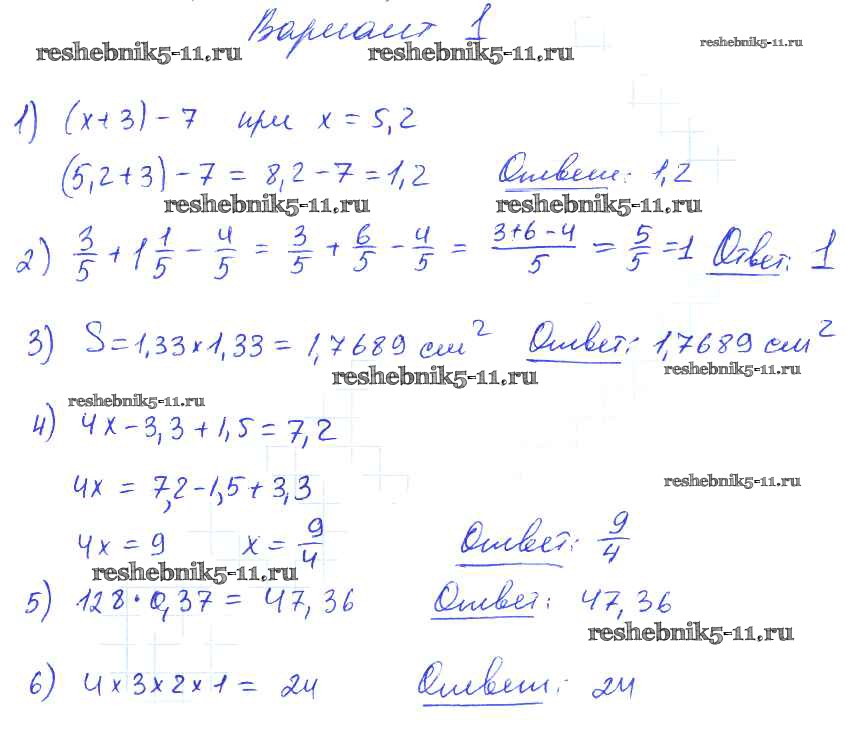 Вариант 1
reshebnik5-11.ru reshebnik5-11.ru reshebnik5-11.ru
1) (x+3) - 7 при x = 5,2
(5,2+3) - 7 = 8,2 - 7 = 1,2 Ответ: 1,2
reshebnik5-11.ru reshebnik5-11.ru
2) 3/5 + 1 1/5 - 4/5 = 3/5 + 6/5 - 4/5 = (3+6-4)/5 = 5/5 = 1 Ответ: 1
3) S = 1,33 × 1,33 = 1,7689 см² Ответ: 1,7689 см²
reshebnik5-11.ru reshebnik5-11.ru
reshebnik5-11.ru
4) 4x - 3,3 + 1,5 = 7,2
4x = 7,2 - 1,5 + 3,3
reshebnik5-11.ru
4x = 9 x = 9/4 Ответ: 9/4
reshebnik5-11.ru
5) 128 · 0,37 = 47,36 Ответ: 47,36
reshebnik5-11.ru
6) 4 × 3 × 2 × 1 = 24 Ответ: 24